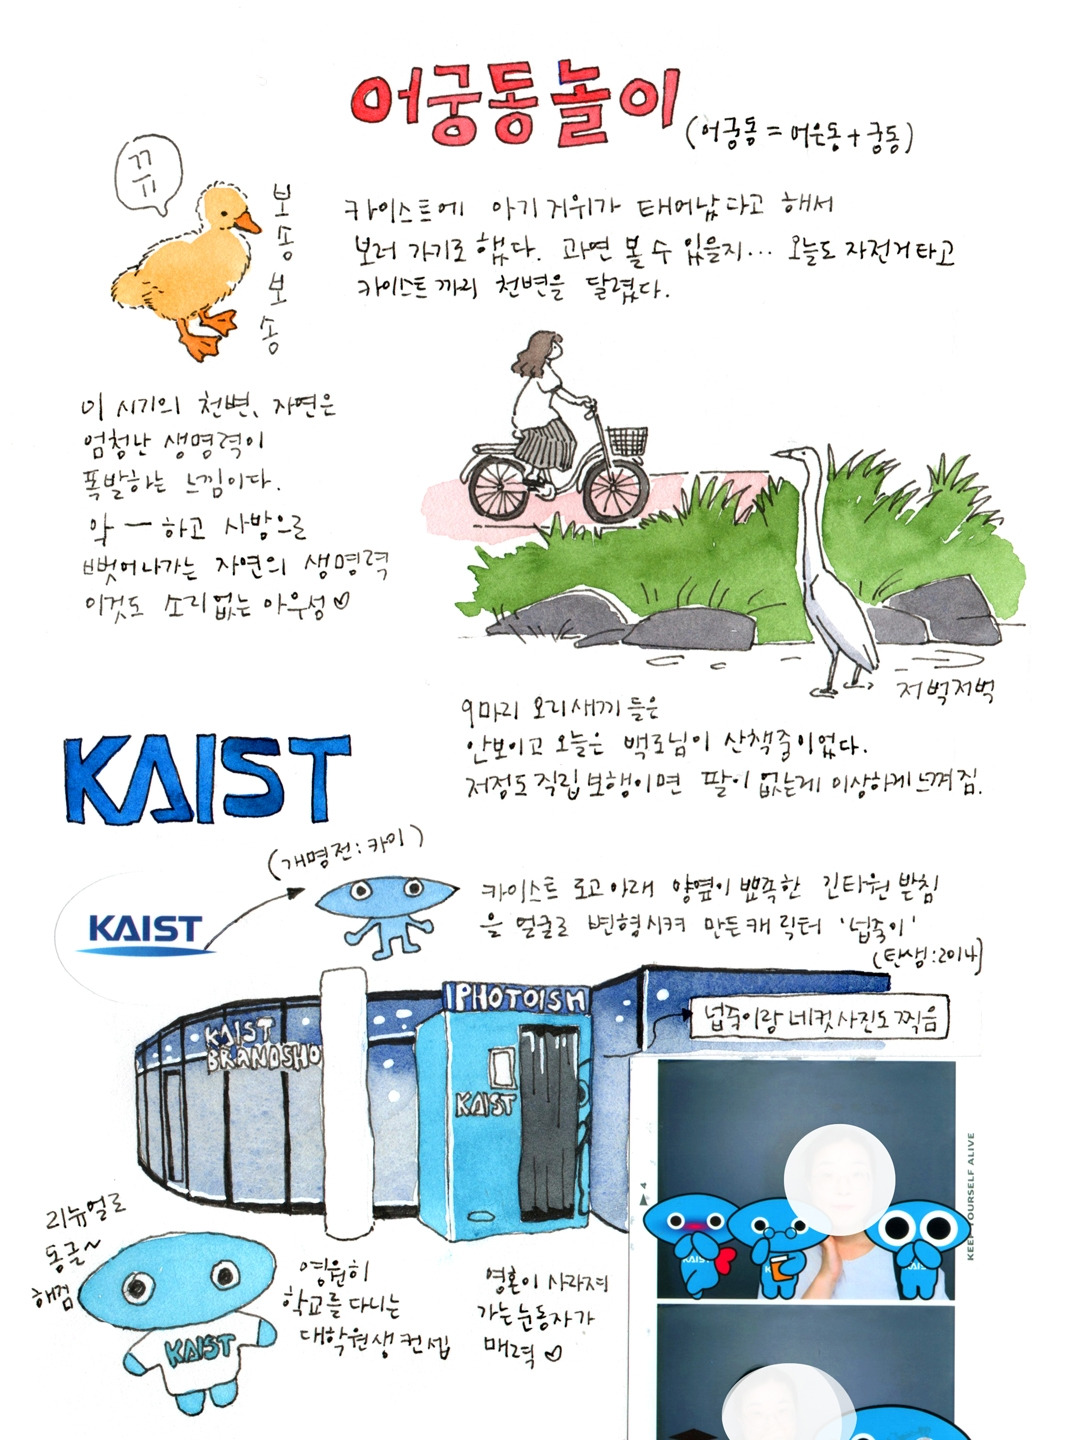 어궁동놀이
(어궁동 = 어은동 + 궁동)
뀨
보송보송
카이스트에 아기거위가 태어났다고 해서
보러 가기로 했다. 과연 볼 수 있을지... 오늘도 자전거타고
카이스트까지 천변을 달렸다.
이 시기의 천변, 자연은
엄청난 생명력이
폭발하는 느낌이다.
악 ー 하고 사방으로
뻗어나가는 자연의 생명력
이것도 소리없는 아우성♡
저벅저벅
9마리 오리새끼들은
안보이고 오늘은 백로님이 산책중이었다.
저정도 직립보행이면 팔이 없는게 이상하게 느껴짐.
KAIST
(개명전: 카이)
KAIST
카이스트 로고 아래 양옆이 뾰족한 긴타원 받침
을 얼굴로 변형시켜 만든 캐릭터 '넙죽이'
(탄생:2014)
PHOTOISM
넙죽이랑 네컷사진도 찍음
KAIST
BRANDSHO
KAIST
4
KEEP YOURSELF ALIVE
KAIST
리뉴얼로
동글~
해짐
KAIST
영원히
학교를 다니는
대학원생 컨셉
영혼이 사라져
가는 눈동자가
매력♡